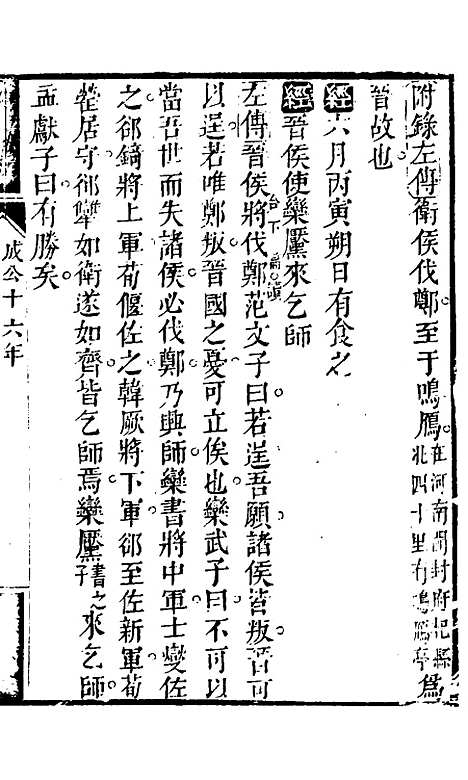 附錄左傳衛侯伐鄭至于鳴鴈在河南開封府杞縣北四十里有鳴鴈亭為
晉故也
經六月丙寅朔日有食之
經晉侯使欒黶來乞師
左傳晉侯將伐鄭范文子曰若逞吾願諸侯皆叛晉可
以逞若唯鄭叛晉國之憂可立俟也欒武子曰不可以
當吾世而失諸侯必伐鄭乃興師欒書將中軍士燮佐
之郤錡將上軍荀偃佐之韓厥將下軍郤至佐新軍荀
罃居守郤犨如衛遂如齊皆乞師焉欒黶書之子來乞師
孟獻子曰有勝矣
成公十六年